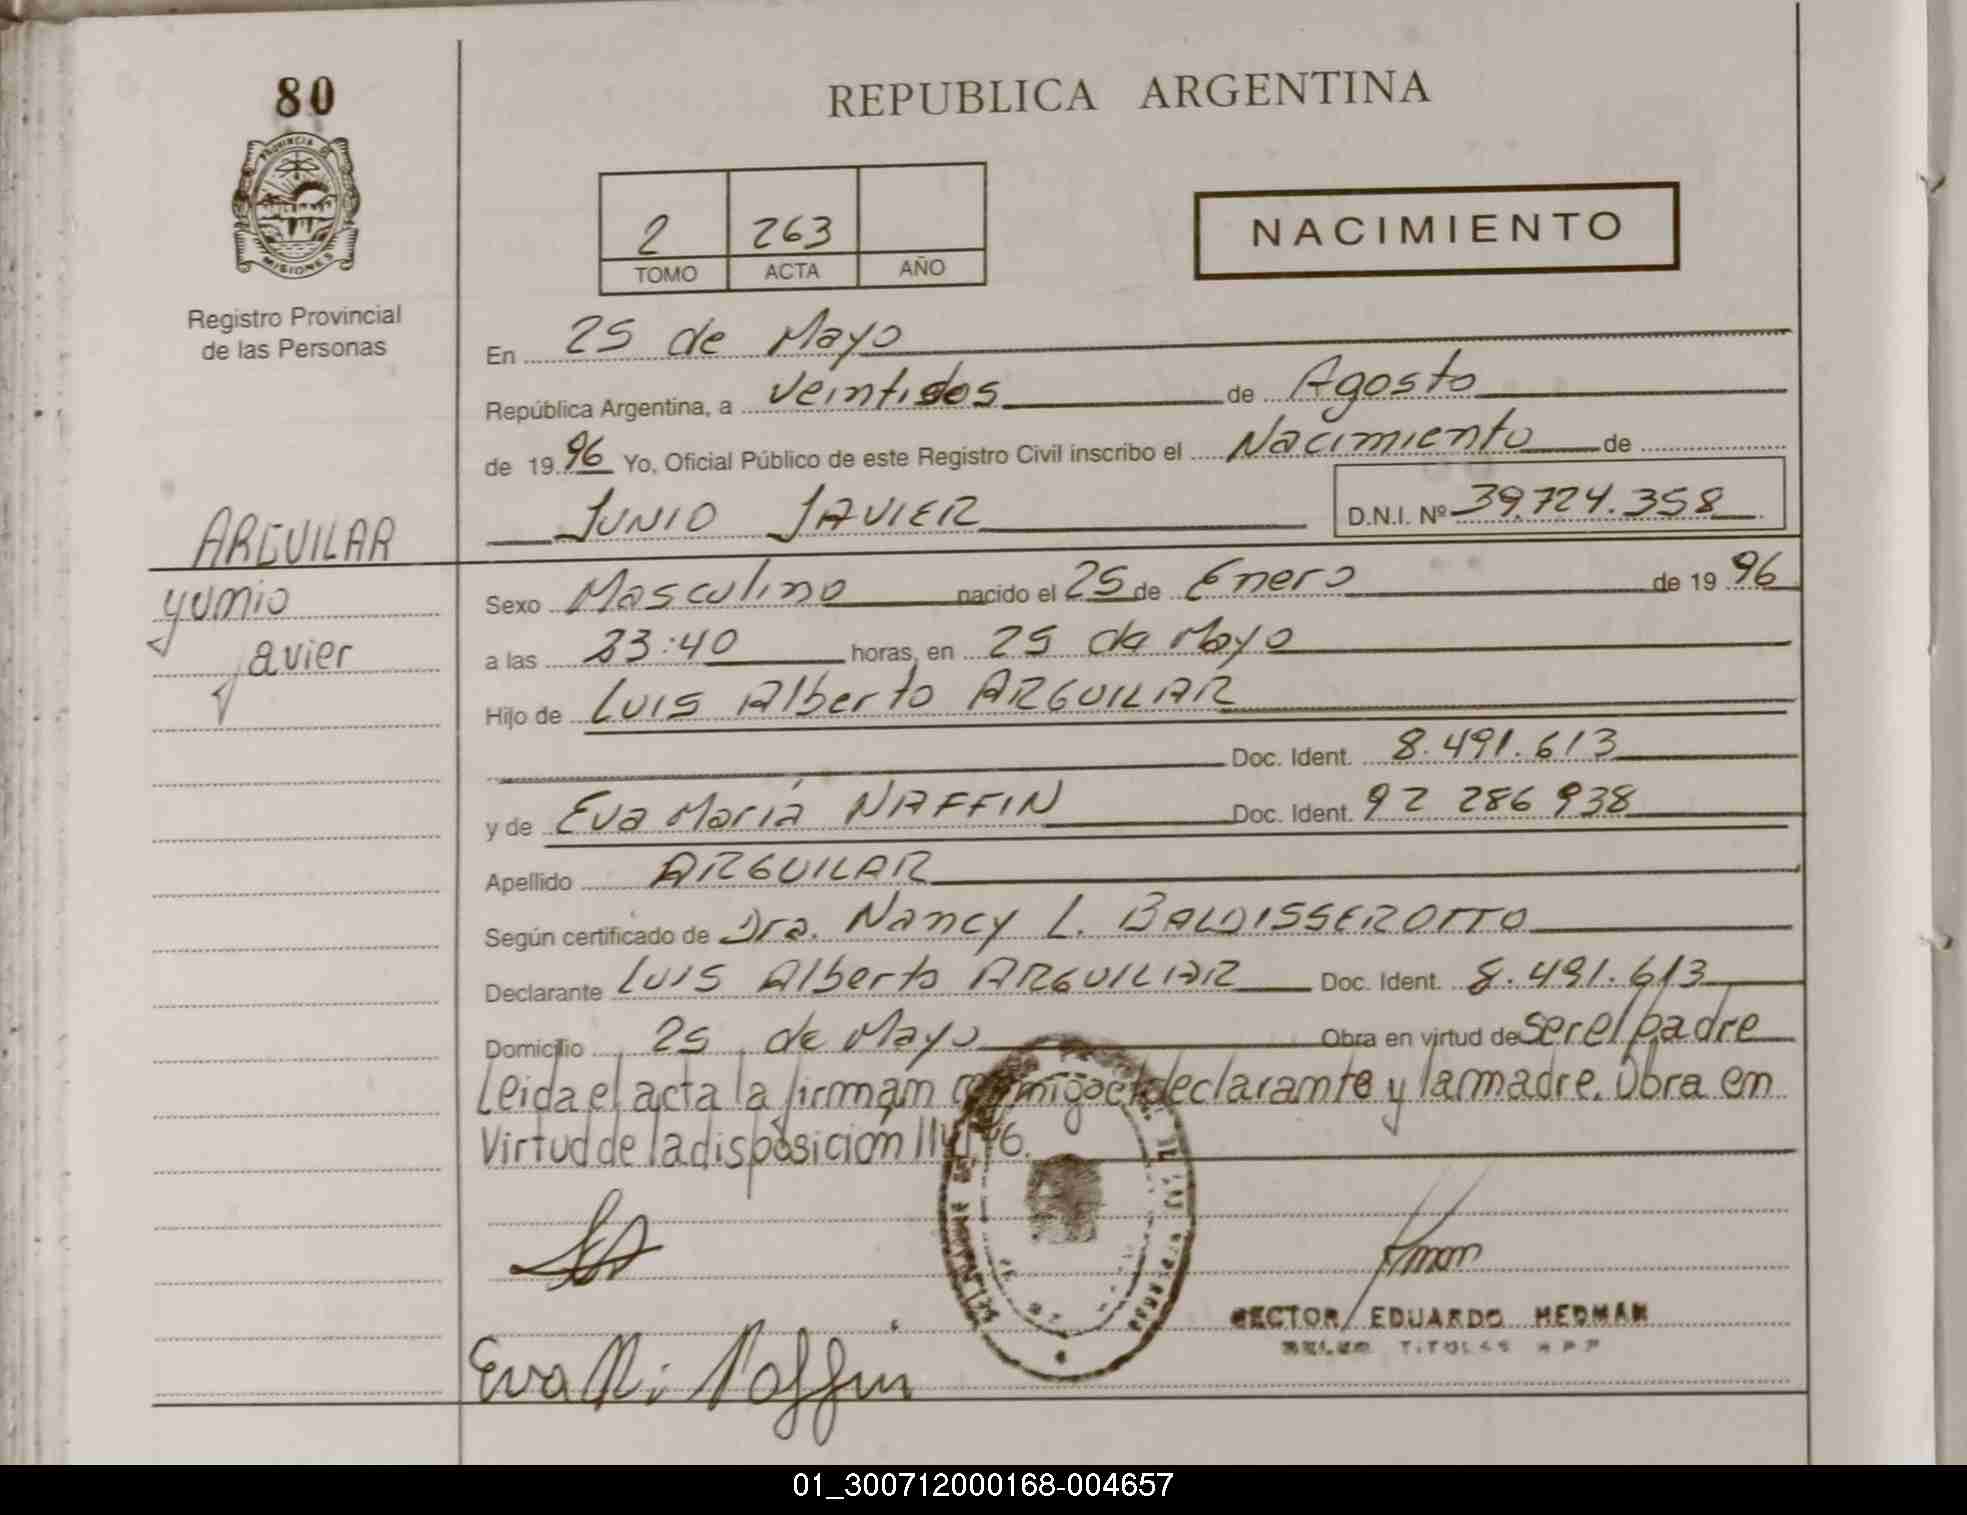 80
PROVINCIA DE
MISIONES
Registro Provincial
de las Personas
REPUBLICA ARGENTINA
2 263
TOMO ACTA AÑO
NACIMIENTO
En 25 de Mayo
República Argentina, a veintidos de Agosto
de 1996 Yo, Oficial Público de este Registro Civil inscribo el Nacimiento de
JUNIO JAVIER D.N.I. Nº 39.724.358
ARGUILAR
yunio
Javier
Sexo Masculino nacido el 25 de Enero de 1996
a las 23:40 horas, en 25 de Mayo
Hijo de Luis Alberto ARGUILAR
Doc. Ident. 8.491.613
y de Eva María NAFFIN Doc. Ident. 92 286 938
Apellido ARGUILAR
Según certificado de Dra. Nancy L. BALDISSEROTTO
Declarante Luis Alberto ARGUILAR Doc. Ident. 8.491.613
Domicilio 25 de Mayo Obra en virtud de ser el padre
Leida el acta la firman conmigo el declarante y la madre. Obra en
Virtud de la disposición
Eva M. Naffin
HECTOR EDUARDO HEDMAN
01_300712000168-004657